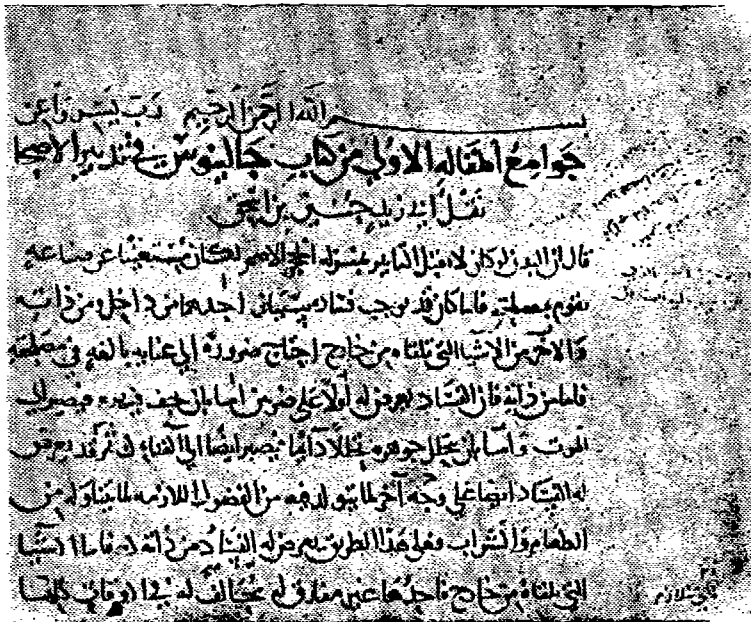 بسم الله الرحمن الرحيم رب يسر واعن
جوامع المقاله الاولي من كتاب جالينوس في تدبير الاصحا
نقل ابي زيد حنين بن اسحق
قال ان البدن لو كان لا يقبل التاثير بمنزله الحجر الاصم لكان مستغنيا عن صناعه
تقوم بمصلحته فلما كان قد يوجب فساده سببان احدهما من داخل من ذاته
والاخر من الاشيا التي تلقاه من خارج احتاج ضرورة الي عنايه بالغه في مصلحته
فاما من ذاته فان الفساد يعرض له اولا علي ضربين اما بان يجف فيصير الي
الموت واما بان يتحلل جوهره تحللا دايما فيصير ايضا الي الفناء ثم قد يعرض
له الفساد ايضا علي وجه آخر لما يتولد فيه من الفضول اللازمه لما يتناوله من
الطعام والشراب فعلي هذا الطريق يعرض له الفساد من ذاته فاما الاشيا
التي تلقاه من خارج فاحدها غير مفارق له مخالف له في الاوقات كلها